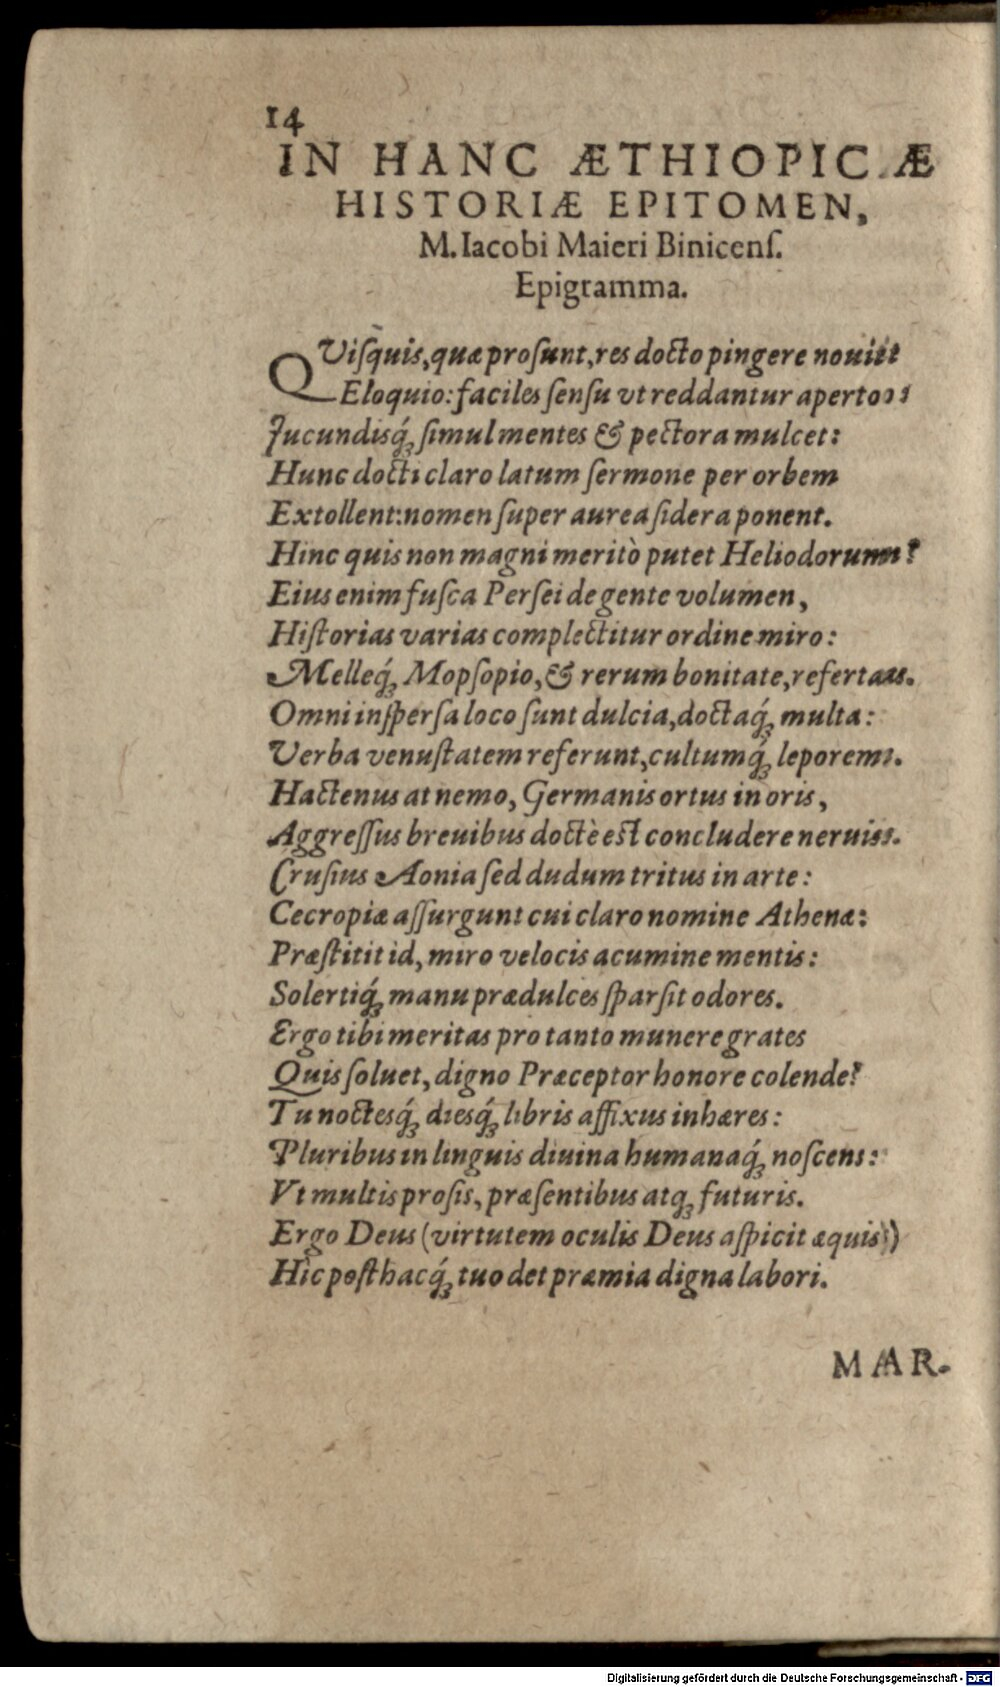 14
IN HANC ÆTHIOPICÆ
HISTORIÆ EPITOMEN,
M. Iacobi Maieri Binicenſ.
Epigramma.
QViſquis, quæ proſunt, res docto pingere nouit
Eloquio: faciles ſenſu vt reddantur aperto:
Jucundisq́ꝫ ſimul mentes & pectora mulcet:
Hunc docti claro latum ſermone per orbem
Extollent: nomen ſuper aurea ſidera ponent.
Hinc quis non magni meritò putet Heliodorum?
Eius enim fuſca Perſei de gente volumen,
Hiſtorias varias complectitur ordine miro:
Melleq́ꝫ Mopſopio, & rerum bonitate, refertas.
Omni inſperſa loco ſunt dulcia, doctaq́ꝫ multa:
Verba venuſtatem referunt, cultumq́ꝫ leporem.
Hactenus at nemo, Germanis ortus in oris,
Aggreſſus breuibus doctè eſt concludere neruis.
Cruſius Aonia ſed dudum tritus in arte:
Cecropiæ aſſurgunt cui claro nomine Athenæ:
Præſtitit id, miro velocis acumine mentis:
Solertiq́ꝫ manu prædulces ſparſit odores.
Ergo tibi meritas pro tanto munere grates
Quis ſoluet, digno Præceptor honore colende?
Tu noctesq́ꝫ diesq́ꝫ libris affixus inhæres:
Pluribus in linguis diuina humanaq́ꝫ noſcens:
Vt multis proſis, præſentibus atqꝫ futuris.
Ergo Deus (virtutem oculis Deus aſpicit æquis)
Hìc poſthacq́ꝫ tuo det præmia digna labori.
MAR-
Digitalisierung gefördert durch die Deutsche Forschungsgemeinschaft - DFG